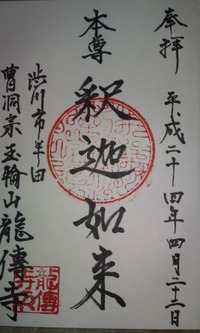 奉拝
平成二十四年四月二十二日
本尊
釈迦如来
渋川市半田
曹洞宗玉輪山龍傳寺